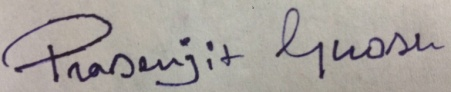 Prasenjit Ghosh